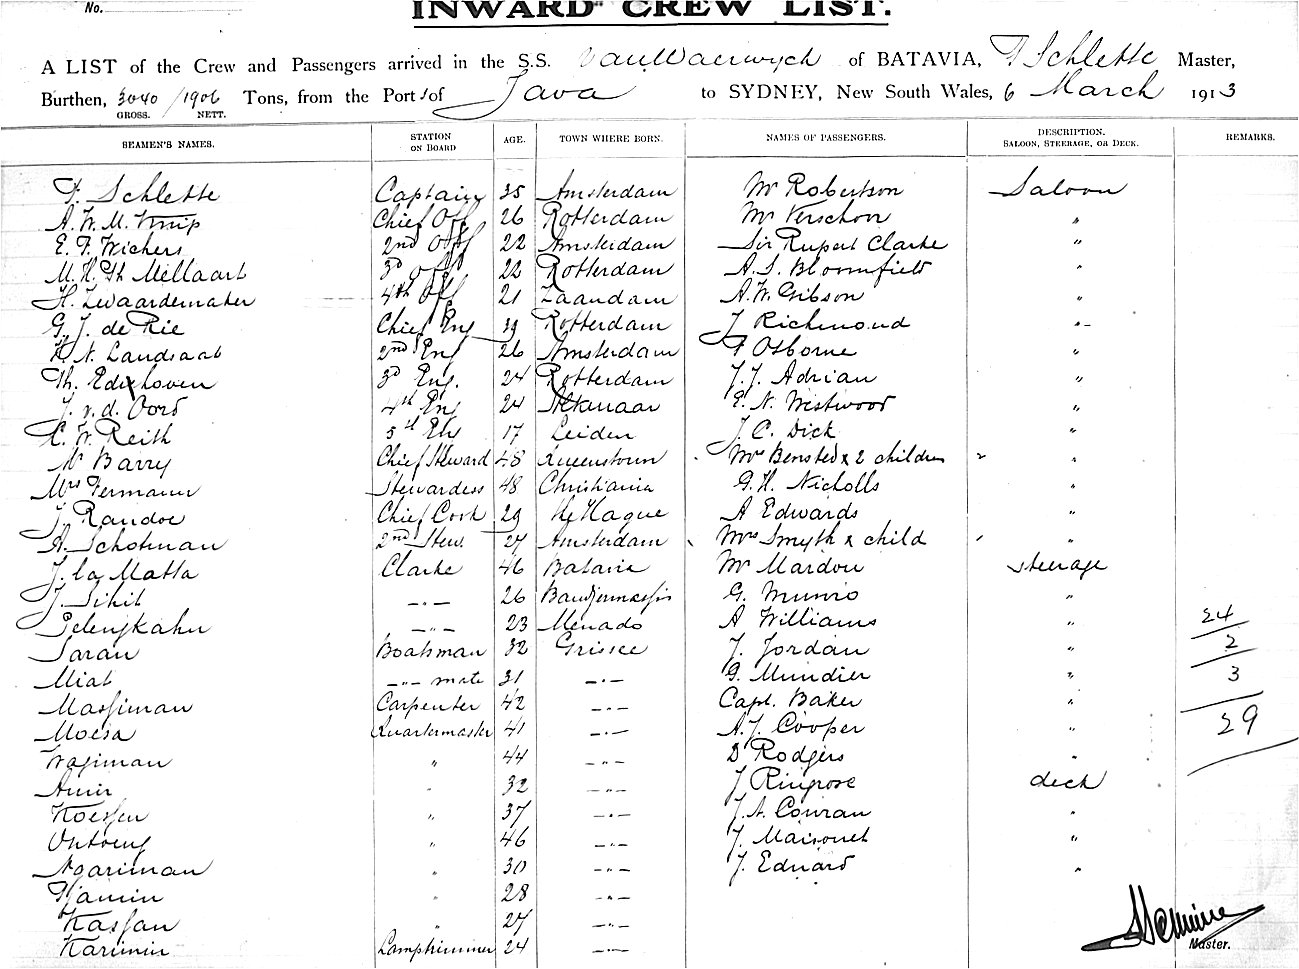 No.
INWARD CREW LIST.
A LIST of the Crew and Passengers arrived in the S.S. Van Waerwyck of BATAVIA, F Schlette Master,
Burthen, 3040 / 1906 Tons, from the Port s of Java to SYDNEY, New South Wales, 6 March 1913
GROSS. NETT.
SEAMEN'S NAMES. STATION ON BOARD AGE. TOWN WHERE BORN. NAMES OF PASSENGERS. DESCRIPTION. SALOON, STEERAGE, OR DECK. REMARKS.
F. Schlette Captain 35 Amsterdam Mr Robertson Saloon
A. W. M. Knip Chief Off 26 Rotterdam Mr Verschon "
E. F. Wichers 2nd Off 22 Amsterdam Sir Rupert Clarke "
M. H. Th Mellaart 3d Off 22 Rotterdam A. S. Bloomfield "
H. Zwaardemaker 4th Off 21 Zaandam A. W. Gibson "
G. J. de Rie Chief Eng 39 Rotterdam J Richmond "
N. Landsaat 2nd Eng 26 Amsterdam F Osborne "
Th. Edixhoven 3d Eng. 24 Rotterdam J. J. Adrian "
J. v. d. Oord 4th Eng 24 Alkmaar E. N. Westwood "
C. W. Reith 5th Eng 17 Leiden J. C. Dick "
Mr Barry Chief Steward 48 Queenstown Mrs Bensted & 2 children "
Mrs Fermann Stewardess 48 Christiania G. H. Nicholls "
J. Randoe Chief Cook 29 the Hague A Edwards "
A. Schotman 2nd Stew. 27 Amsterdam Mrs Smyth & child "
J. la Matta Clarke 46 Batavia Mr Mardon steerage
J. Sihit -"- 26 Bandjermassin G. Munro "
Pelengkahu -"- 23 Menado A Williams " 24
Saran Boatsman 32 Grissee J. Jordan " 2
Miat -"- mate 31 -"- G. Mundier " 3
Massiman Carpenter 42 -"- Capt. Baker " 29
Moesa Quartermaster 41 -"- A. J. Cooper "
Wagiman " 44 -"- D Rodgers "
Amir " 32 -"- J Ringrose deck
" 37 -"- J. A. Conran "
Ontoeng " 46 -"- J. Maisonet "
Ngariman " 30 -"- J. Edward "
Tjamin " 28 -"-
Kassan " 27 -"-
Karimin Lamptrimmer 24 -"-
Master.